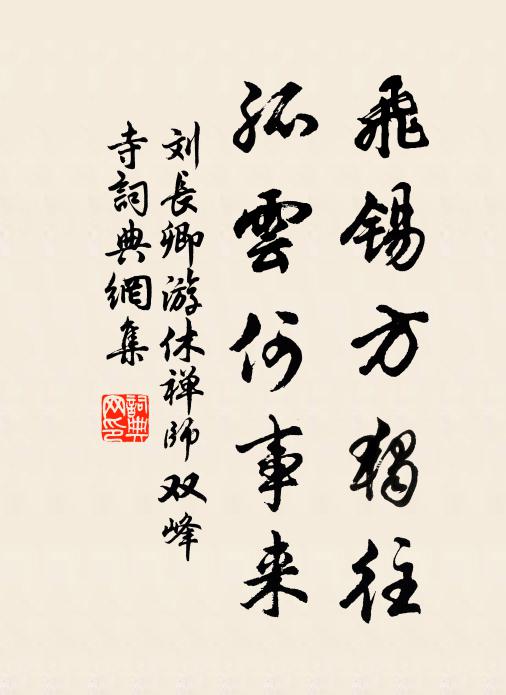 飛錫方獨往
孤雲何事来
刘長卿游休禅師双峰
寺詞典網集
詞典
网印